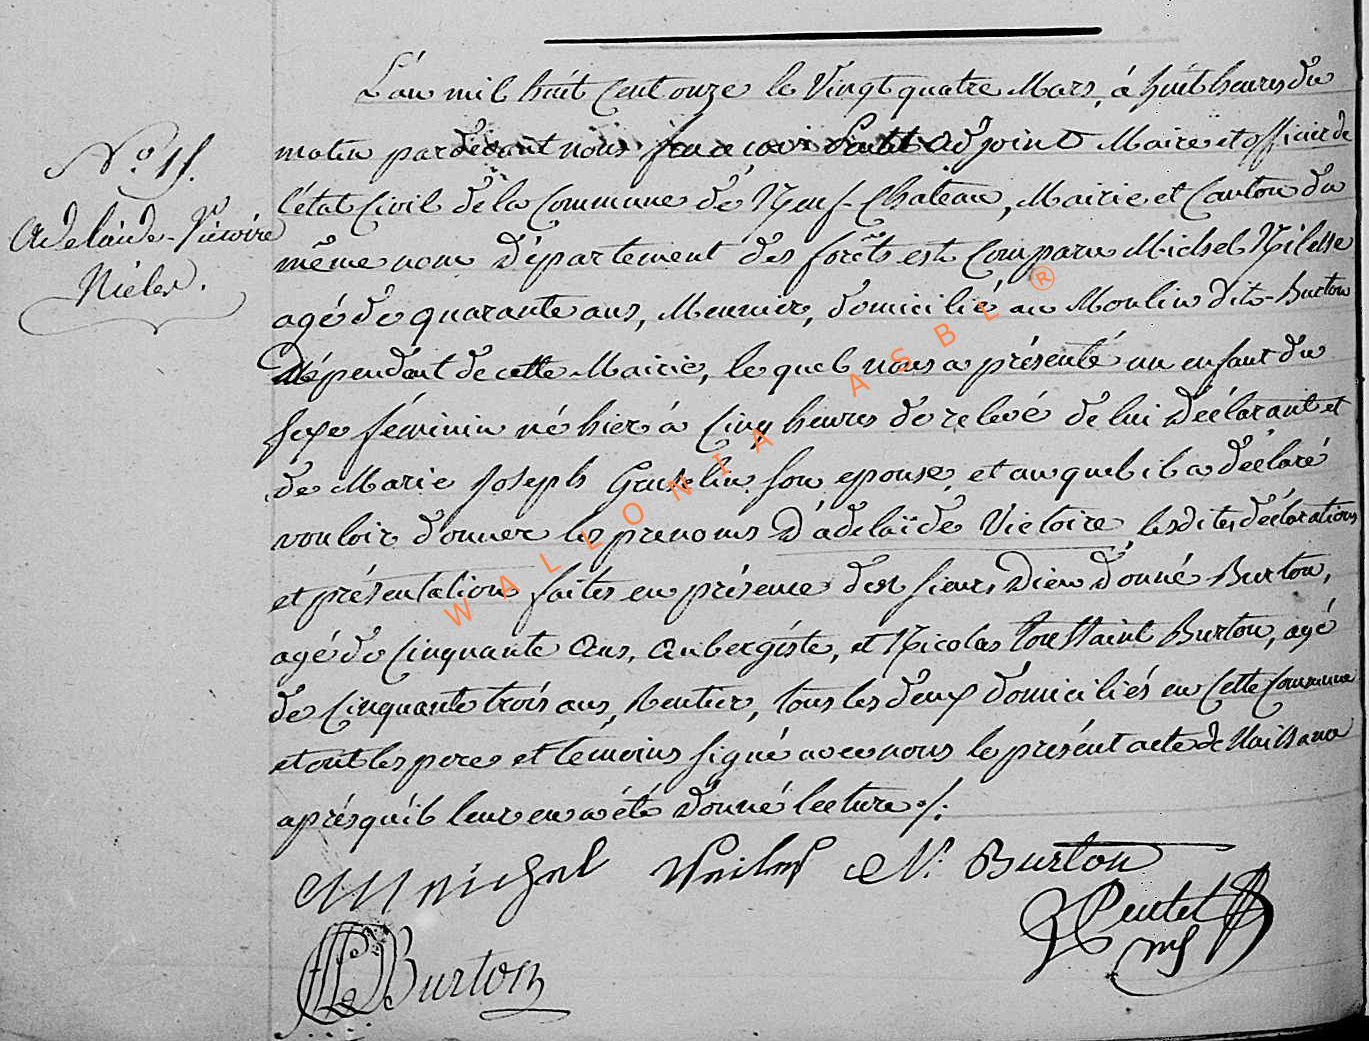 L'an mil huit cent onze le vingt quatre Mars, à huit heures du
matin par devant nous adjoint Maire et officier de
l'état Civil de la Commune de Neuf-Chateau, Mairie et Canton du
même nom Département des forêts est Comparu Michel Nilesse
agé de quarante ans, Meunier, domicilié au Moulin dit-Burton
Dépendant de cette Mairie, lequel nous a présenté un enfant du
sexe féminin né hier à Cinq heures de relevé de lui Déclarant et
de Marie Joseph son epouse, et auquel il a déclaré
vouloir donner les prenoms D'adelaïde Victoire, lesdites déclarations
et présentation faites en présence des sieurs Dieu Donné Burton,
agé de Cinquante Ans, Aubergiste, et Nicolas Toussaint Burton, agé
de Cinquante trois ans, Rentier, tous les deux domiciliés en Cette Commune
et ont les pere et témoins signé avec nous le présent acte de Naissance
après qu'il leur en a été donné lecture ./.
N.º 15.
Adelaide-Victoire
Nieles.
Michel N. Burton
Burton
WALLONIA ASBL ®